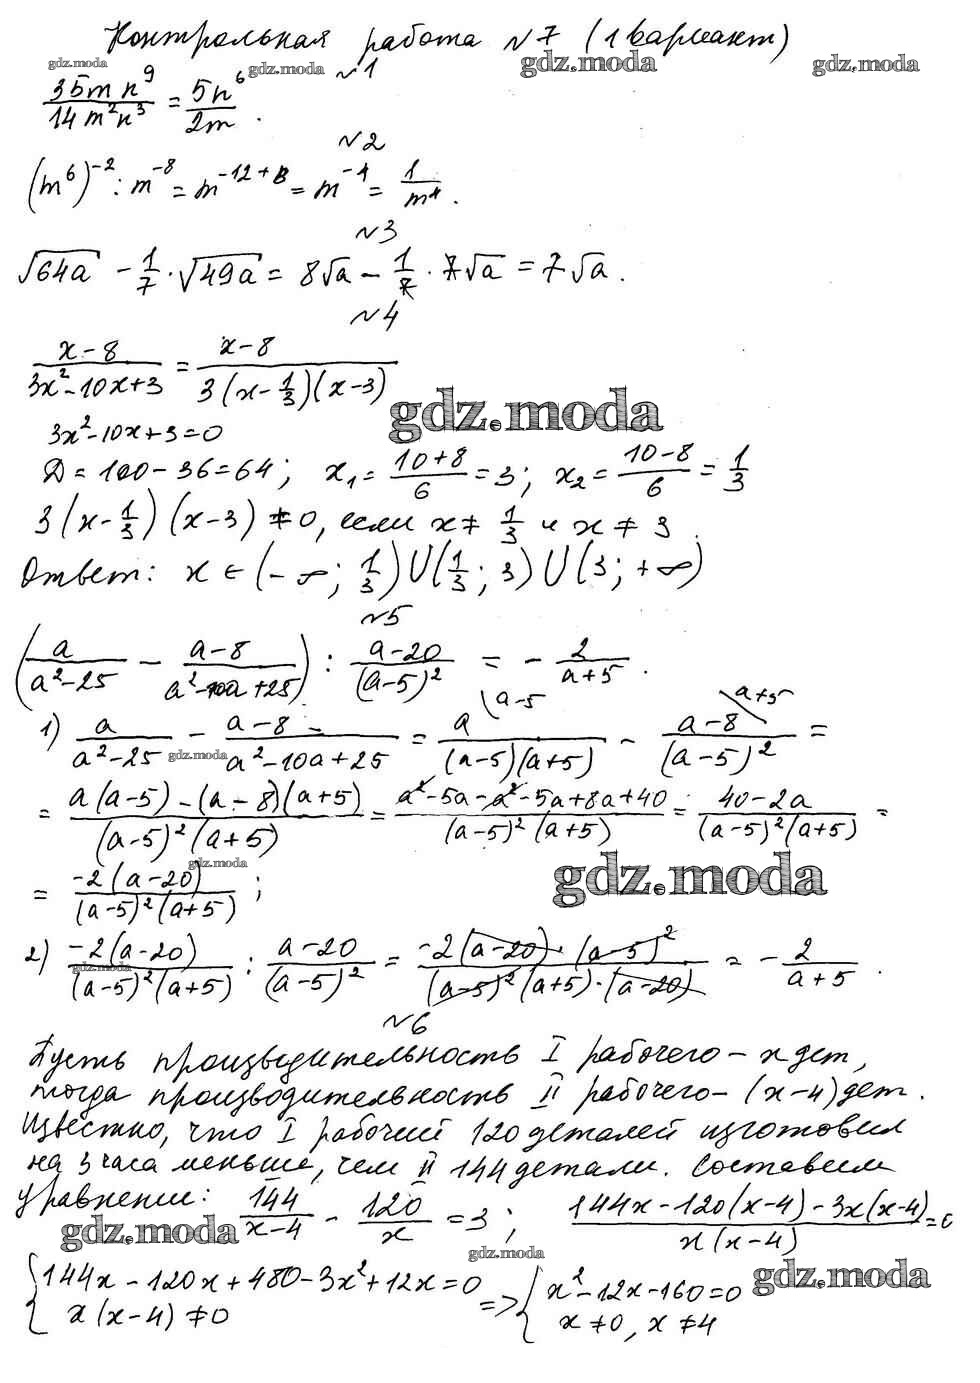 Контрольная работа №7 (1 вариант)
gdz.moda gdz.moda gdz.moda gdz.moda
№1
35mn⁹/14m²n³ = 5n⁶/2m.
№2
(m⁶)⁻² : m⁻⁸ = m⁻¹²⁺⁸ = m⁻⁴ = 1/m⁴.
№3
√64a − 1/7 · √49a = 8√a − 1/7 · 7√a = 7√a.
№4
(x−8)/(3x²−10x+3) = (x−8)/(3(x−1/3)(x−3))
gdz.moda
3x²−10x+3=0
D=100−36=64; x₁=(10+8)/6=3; x₂=(10−8)/6=1/3
3(x−1/3)(x−3)≠0, если x≠1/3 и x≠3.
Ответ: x∈(−∞; 1/3)U(1/3; 3)U(3; +∞)
№5
(a/(a²−25) − (a−8)/(a²−10a+25)) : (a−20)/(a−5)² = −2/(a+5).
1) a/(a²−25) − (a−8)/(a²−10a+25) = a\a−5/((a−5)(a+5)) − (a−8)\a+5/(a−5)² =
gdz.moda
= (a(a−5)−(a−8)(a+5))/((a−5)²(a+5)) = (a²−5a−a²−5a+8a+40)/((a−5)²(a+5)) = (40−2a)/((a−5)²(a+5)) =
gdz.moda
= −2(a−20)/((a−5)²(a+5));
gdz.moda
2) −2(a−20)/((a−5)²(a+5)) : (a−20)/(a−5)² = −2(a−20)·(a−5)²/((a−5)²(a+5)·(a−20)) = −2/(a+5).
gdz.moda
№6
Пусть производительность I рабочего − x дет,
тогда производительность II рабочего − (x−4) дет.
Известно, что I рабочий 120 деталей изготовил
на 3 часа меньше, чем II 144 детали. Составим
уравнение: 144/(x−4) − 120/x = 3; (144x−120(x−4)−3x(x−4))/(x(x−4))=0
gdz.moda gdz.moda gdz.moda
{144x−120x+480−3x²+12x=0 => {x²−12x−160=0
x(x−4)≠0 x≠0, x≠4